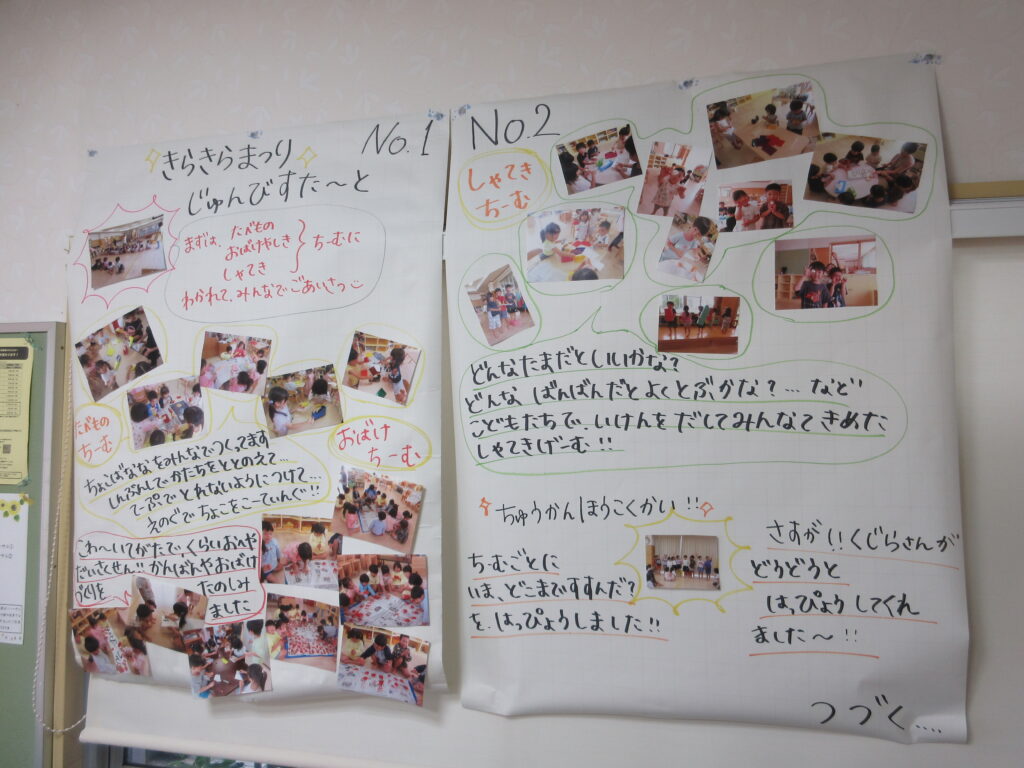 No.1
きらきらまつり
じゅんびすた〜と
まずは、たべもの
おばけやしき
しゃてき
ちーむに
わかれて、みんなでごあいさつ
たべもの
ちーむ
ちょこばななをみんなでつくってます
しんぶんしでかたちをととのえて…
てーぷでとれないようにつけて…
えのぐでちょこをこーてぃんぐ!!
おばけ
ちーむ
こわ〜いてがたで、くらいおへや
だいさくせん!! かんばんやおばけ
づくりを
たのしみ
ました
No.2
しゃてき
ちーむ
どんなたまだといいかな?
どんな ばんばんだとよくとぶかな?…など
こどもたちで、いけんをだしてみんなできめた
しゃてきげーむ!!
ちゅうかんほうこくかい!!
ちーむごとに
いま、どこまですすんだ?
を、はっぴょうしました!!
さすが!! くじらさんが
どうどうと
はっぴょうしてくれ
ました〜!!
つづく....